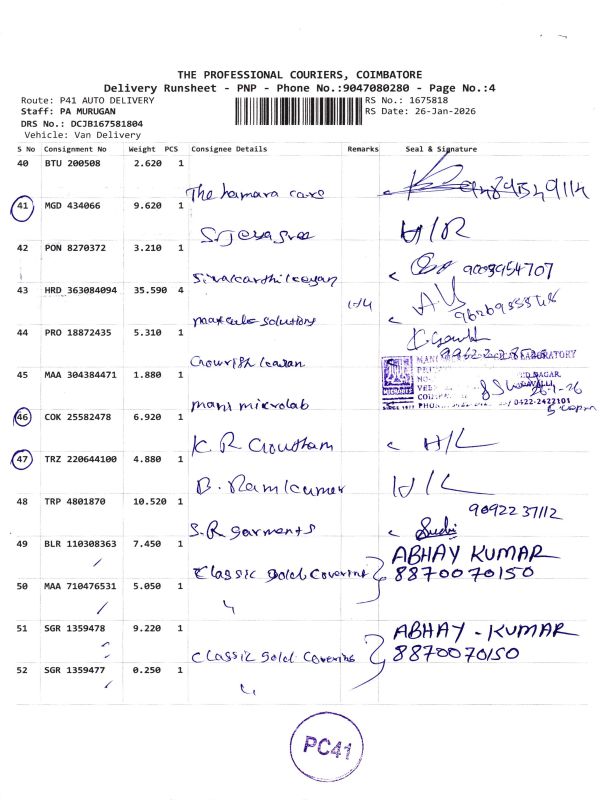 THE PROFESSIONAL COURIERS, COIMBATORE
Delivery Runsheet - PNP - Phone No.:9047080280 - Page No.:4
Route: P41 AUTO DELIVERY RS No.: 1675818
Staff: PA MURUGAN RS Date: 26-Jan-2026
DRS No.: DCJB167581804
Vehicle: Van Delivery
S No Consignment No Weight PCS Consignee Details Remarks Seal & Signature
40 BTU 200508 2.620 1
The hamara care
41 MGD 434066 9.620 1
Srjeyasree H/R
42 PON 8270372 3.210 1
Sivakarthikeyan 9003954707
43 HRD 363084094 35.590 4
solutions
44 PRO 18872435 5.310 1
45 MAA 304384471 1.880 1
LABORATORY
NAGAR
26-1-26
0422-2422101
mani microlab
46 COK 25582478 6.920 1
K. R Gowtham H/L
47 TRZ 220644100 4.880 1
B. Ramkumar H/L
48 TRP 4801870 10.520 1 9092237112
S.R garments Sudi
49 BLR 110308363 7.450 1 ABHAY KUMAR
Classic Gold Covering 8870070150
50 MAA 710476531 5.050 1
51 SGR 1359478 9.220 1 ABHAY - KUMAR
Classic Gold Covering 8870070150
52 SGR 1359477 0.250 1
PC41